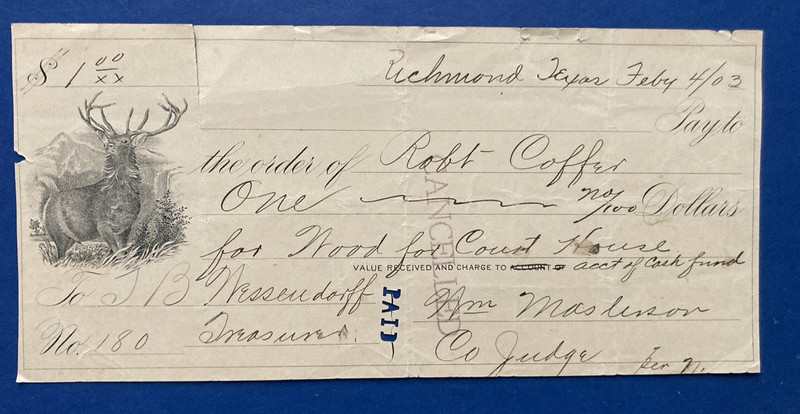 $ 1 00/xx
Richmond Texas Feby 4/03
Pay to
the order of Robt Coffer
One no/100 Dollars
for Wood for Court House
VALUE RECEIVED AND CHARGE TO ACCOUNT OF acct of Cash fund
To J B Wessendorff
Wm Masterson
No. 180 Treasurer.
Co Judge
per
CANCELLED
PAID